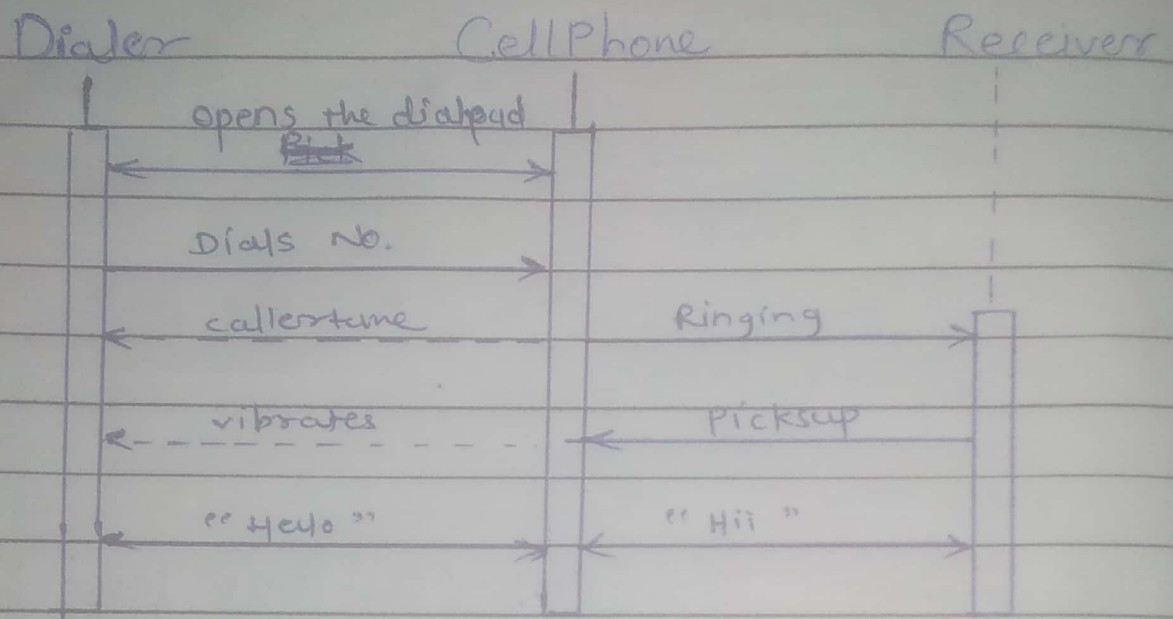 Dialer CellPhone Receiver
opens the dialpad
Dials No.
callertune Ringing
vibrates Picksup
"Hello" "Hii"